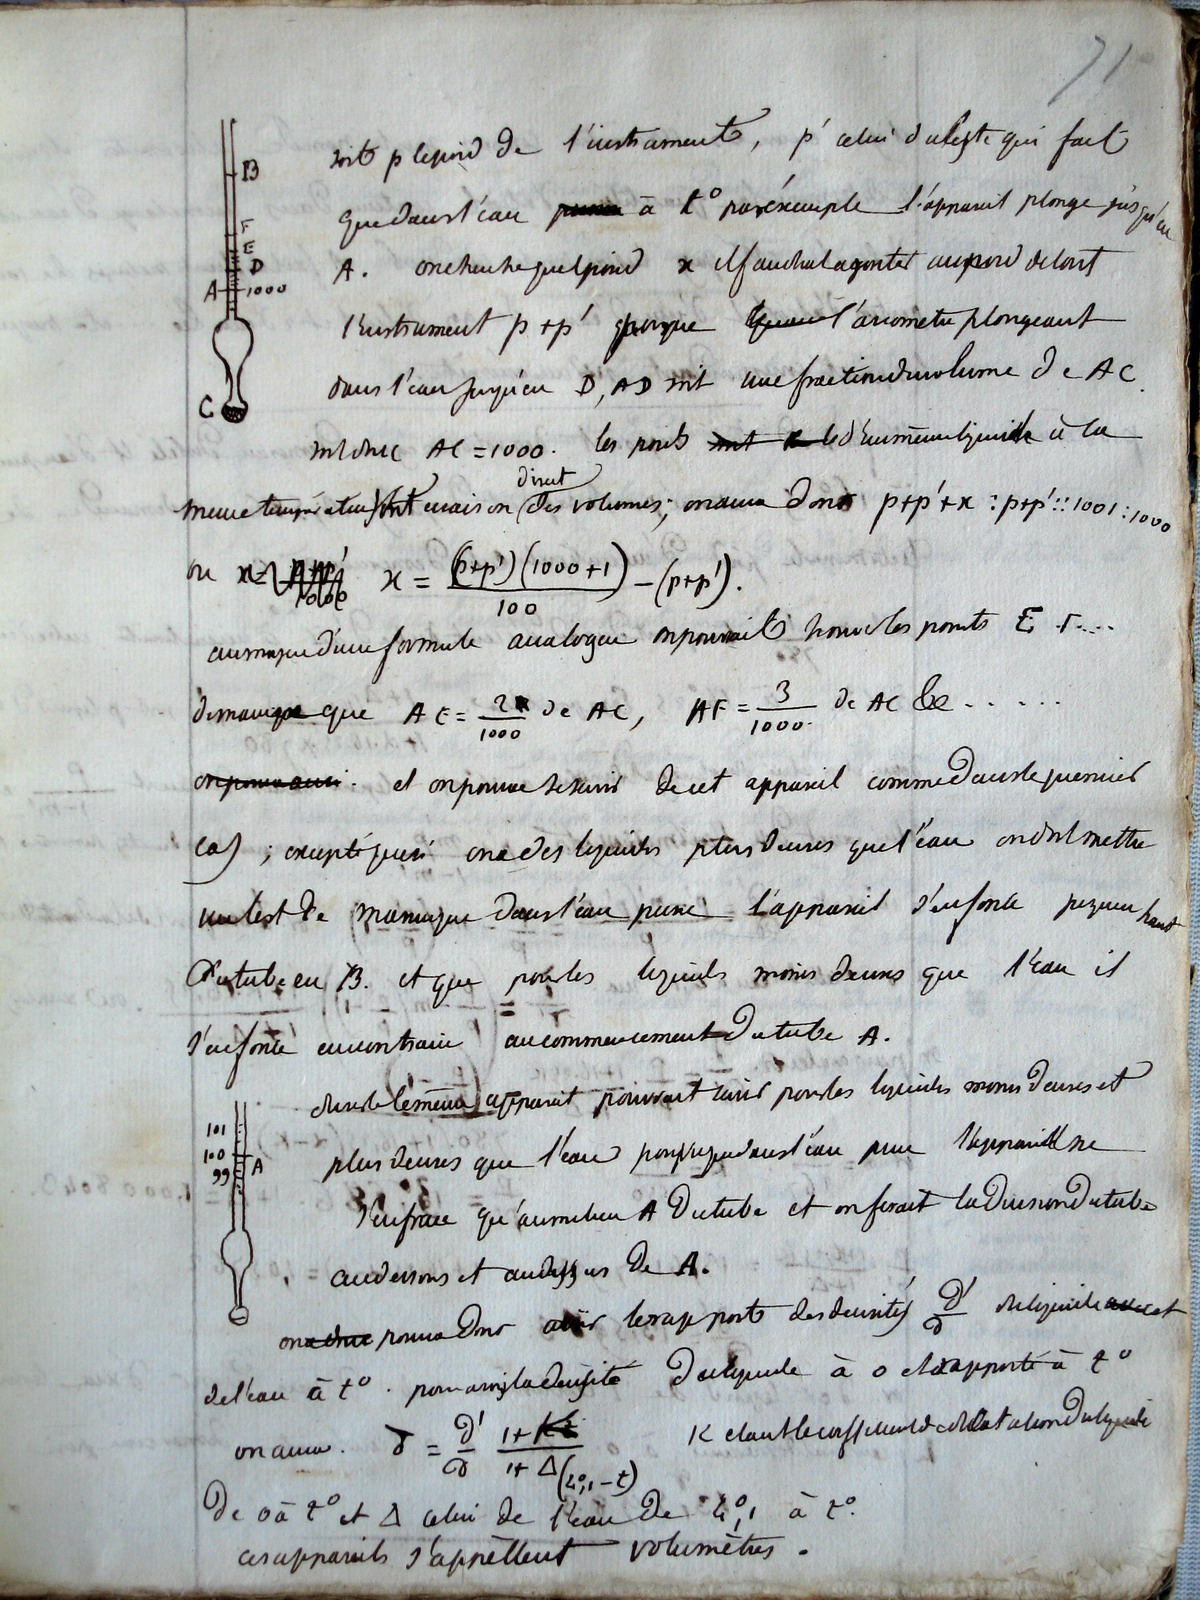 71
B
F
E
D
A 1000
C
soit p le poid de l'instrument, p' celui du leste qui fait
que dans l'eau à t° par éxemple l'appareil plonge jusqu'en
A. on cherche quel poid x il faudrat agouter au poid de tout
l'instrument p + p' pour que l'ariometre plongeant
dans l'eau jusqu'en D, AD soit une fraction du volume de AC.
soit donc AC = 1000. les poids d'un même liquide à la
meme température sont en raison direct des volumes; on aura donc p+p'+x : p+p' :: 1001 : 1000
ou x = (p+p')(1000+1)/100 - (p+p').
au moyen d'une formule analogue on pourrait trouver les points E F....
de maniere que AE = 2/1000 de AC, AF = 3/1000 de AC &c .....
et on pourra se servir de cet appareil comme dans le premier
cas ; excepté que si on a des liquides plus denses que l'eau on doit mettre
un lest de maniere que dans l'eau pure l'appareil s'enfonce jusqu'en haut
du tube en B. et que pour les liquides moins denses que l'eau il
s'enfonce au contraire au commencement du tube A.
101
100
99 A
si le même appareil pouvait servir pour les liquides moins denses et
plus denses que l'eau pour que dans l'eau pure l'appareil ne
s'enfonce qu'au milieu A du tube et on ferait la division du tube
au dessous et au dessus de A.
on pourra donc avoir les rapports des densités d'/d du liquide et
de l'eau à t°. pour avoir la densité du liquide à 0 et rapporté à t°
on aura. δ = d'/d (1+Kt)/(1+Δ(4°,1-t)) K etant le coefficient de dilatation du liquide
de 0 à t° et Δ celui de l'eau de 4°,1 à t°.
ces appareils s'appèllent volumètres.